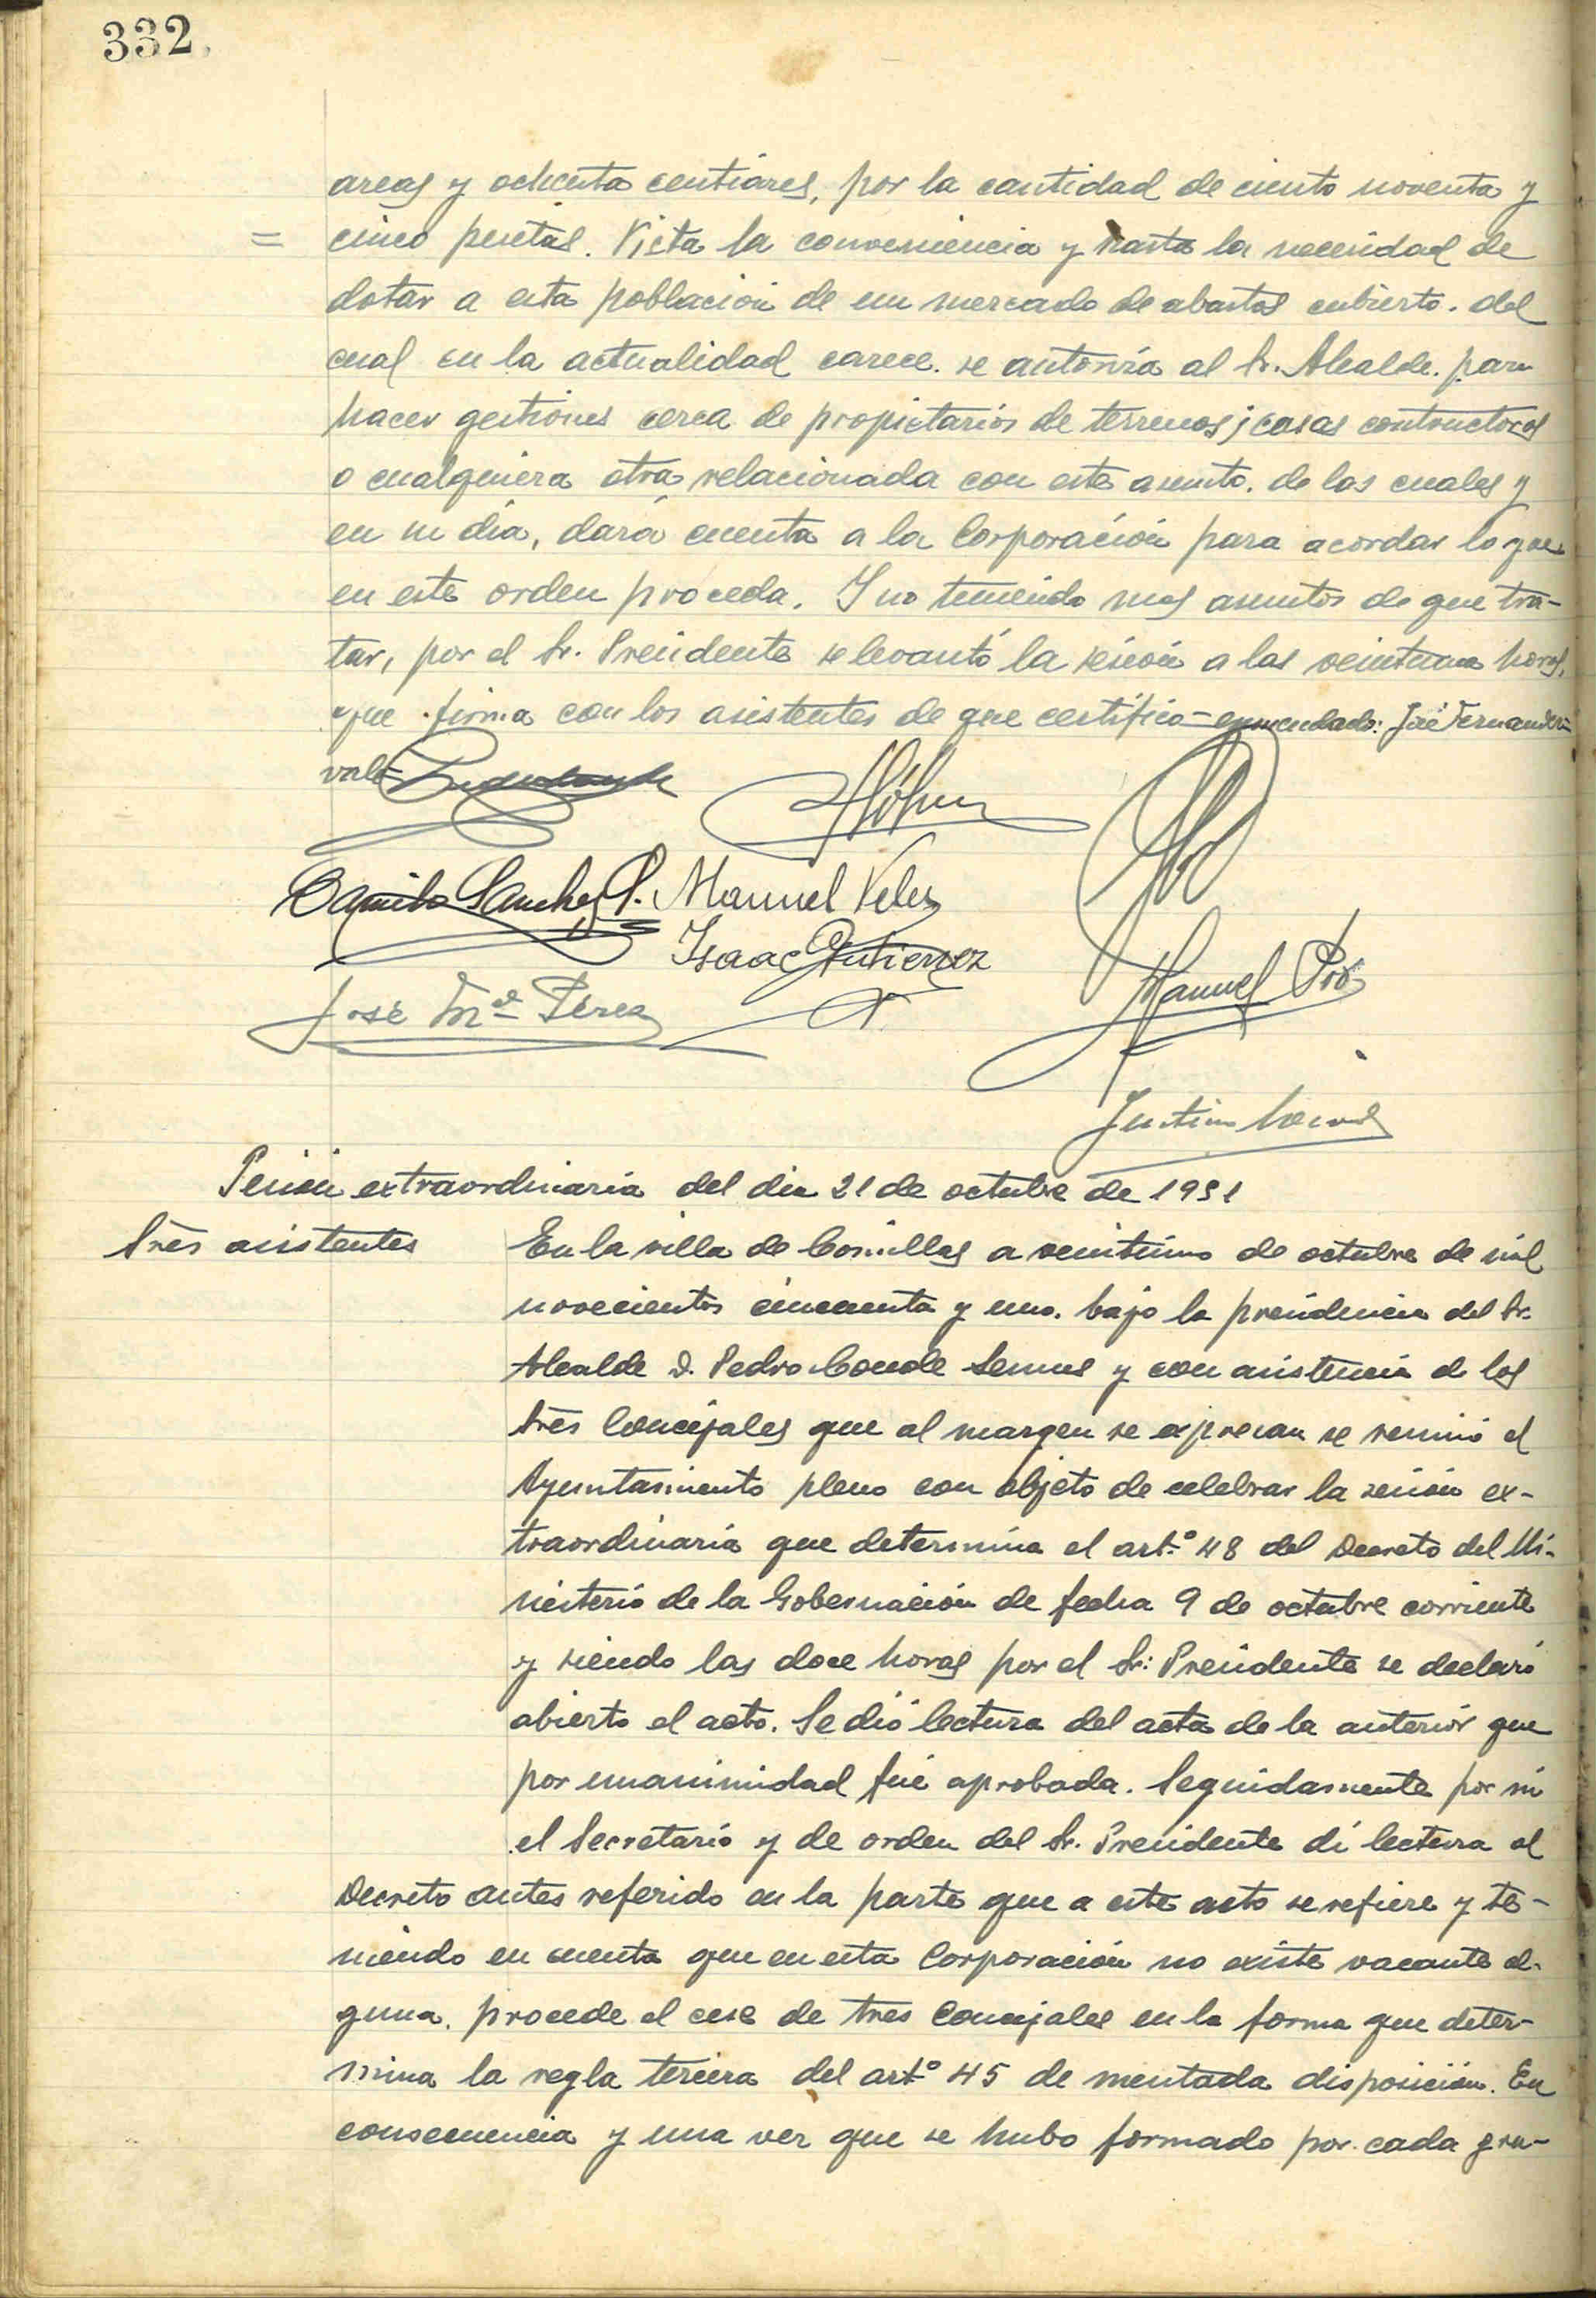 332.
areas y ochenta centiáres, por la cantidad de ciento noventa y
= cinco pesetas. Vista la conveniencia y hasta la necesidad de
dotar a esta población de un mercado de abastos cubierto. del
cual en la actualidad carece. se autoriza al Sr. Alcalde. para
hacer gestiones cerca de propietarios de terrenos; casas contructoras
o cualquiera otra relacionada con este asunto. de las cuales y
en su día, dará cuenta a la Corporación para acordar lo que
en este orden proceda. Y no teniendo mas asuntos de que tra-
tar, por el Sr. Presidente se levantó la sesión a las veintiuna horas,
que firma con los asistentes de que certifico - enmendado: José Fernandez=
vale
Camilo Sanchez P. Manuel Velez
Isaac Gutierrez
José Mª Pérez
Manuel
Sesión extraordinaria del dia 21 de octubre de 1951
Sres asistentes
En la villa de Comillas a veintiuno de octubre de mil
novecientos cincuenta y uno. bajo la presidencia del Sr.
Alcalde D. Pedro Conde y con asistencia de los
Sres Concejales que al margen se expresan se reunió el
Ayuntamiento pleno con objeto de celebrar la sesión ex-
traordinaria que determina el art.º 48 del Decreto del Mi-
nisterio de la Gobernación de fecha 9 de octubre corriente
y siendo las doce horas por el Sr. Presidente se declaró
abierto el acto. Se dió lectura del acta de la anterior que
por unanimidad fué aprobada. Seguidamente por mi
el Secretario y de orden del Sr. Presidente dí lectura al
Decreto antes referido en la parte que a este acto se refiere y te-
niendo en cuenta que en esta Corporación no existe vacante al-
guna, procede el cese de tres Concejales en la forma que deter-
mina la regla tercera del artº 45 de mentada disposición. En
consecuencia y una vez que se hubo formado por cada gru-